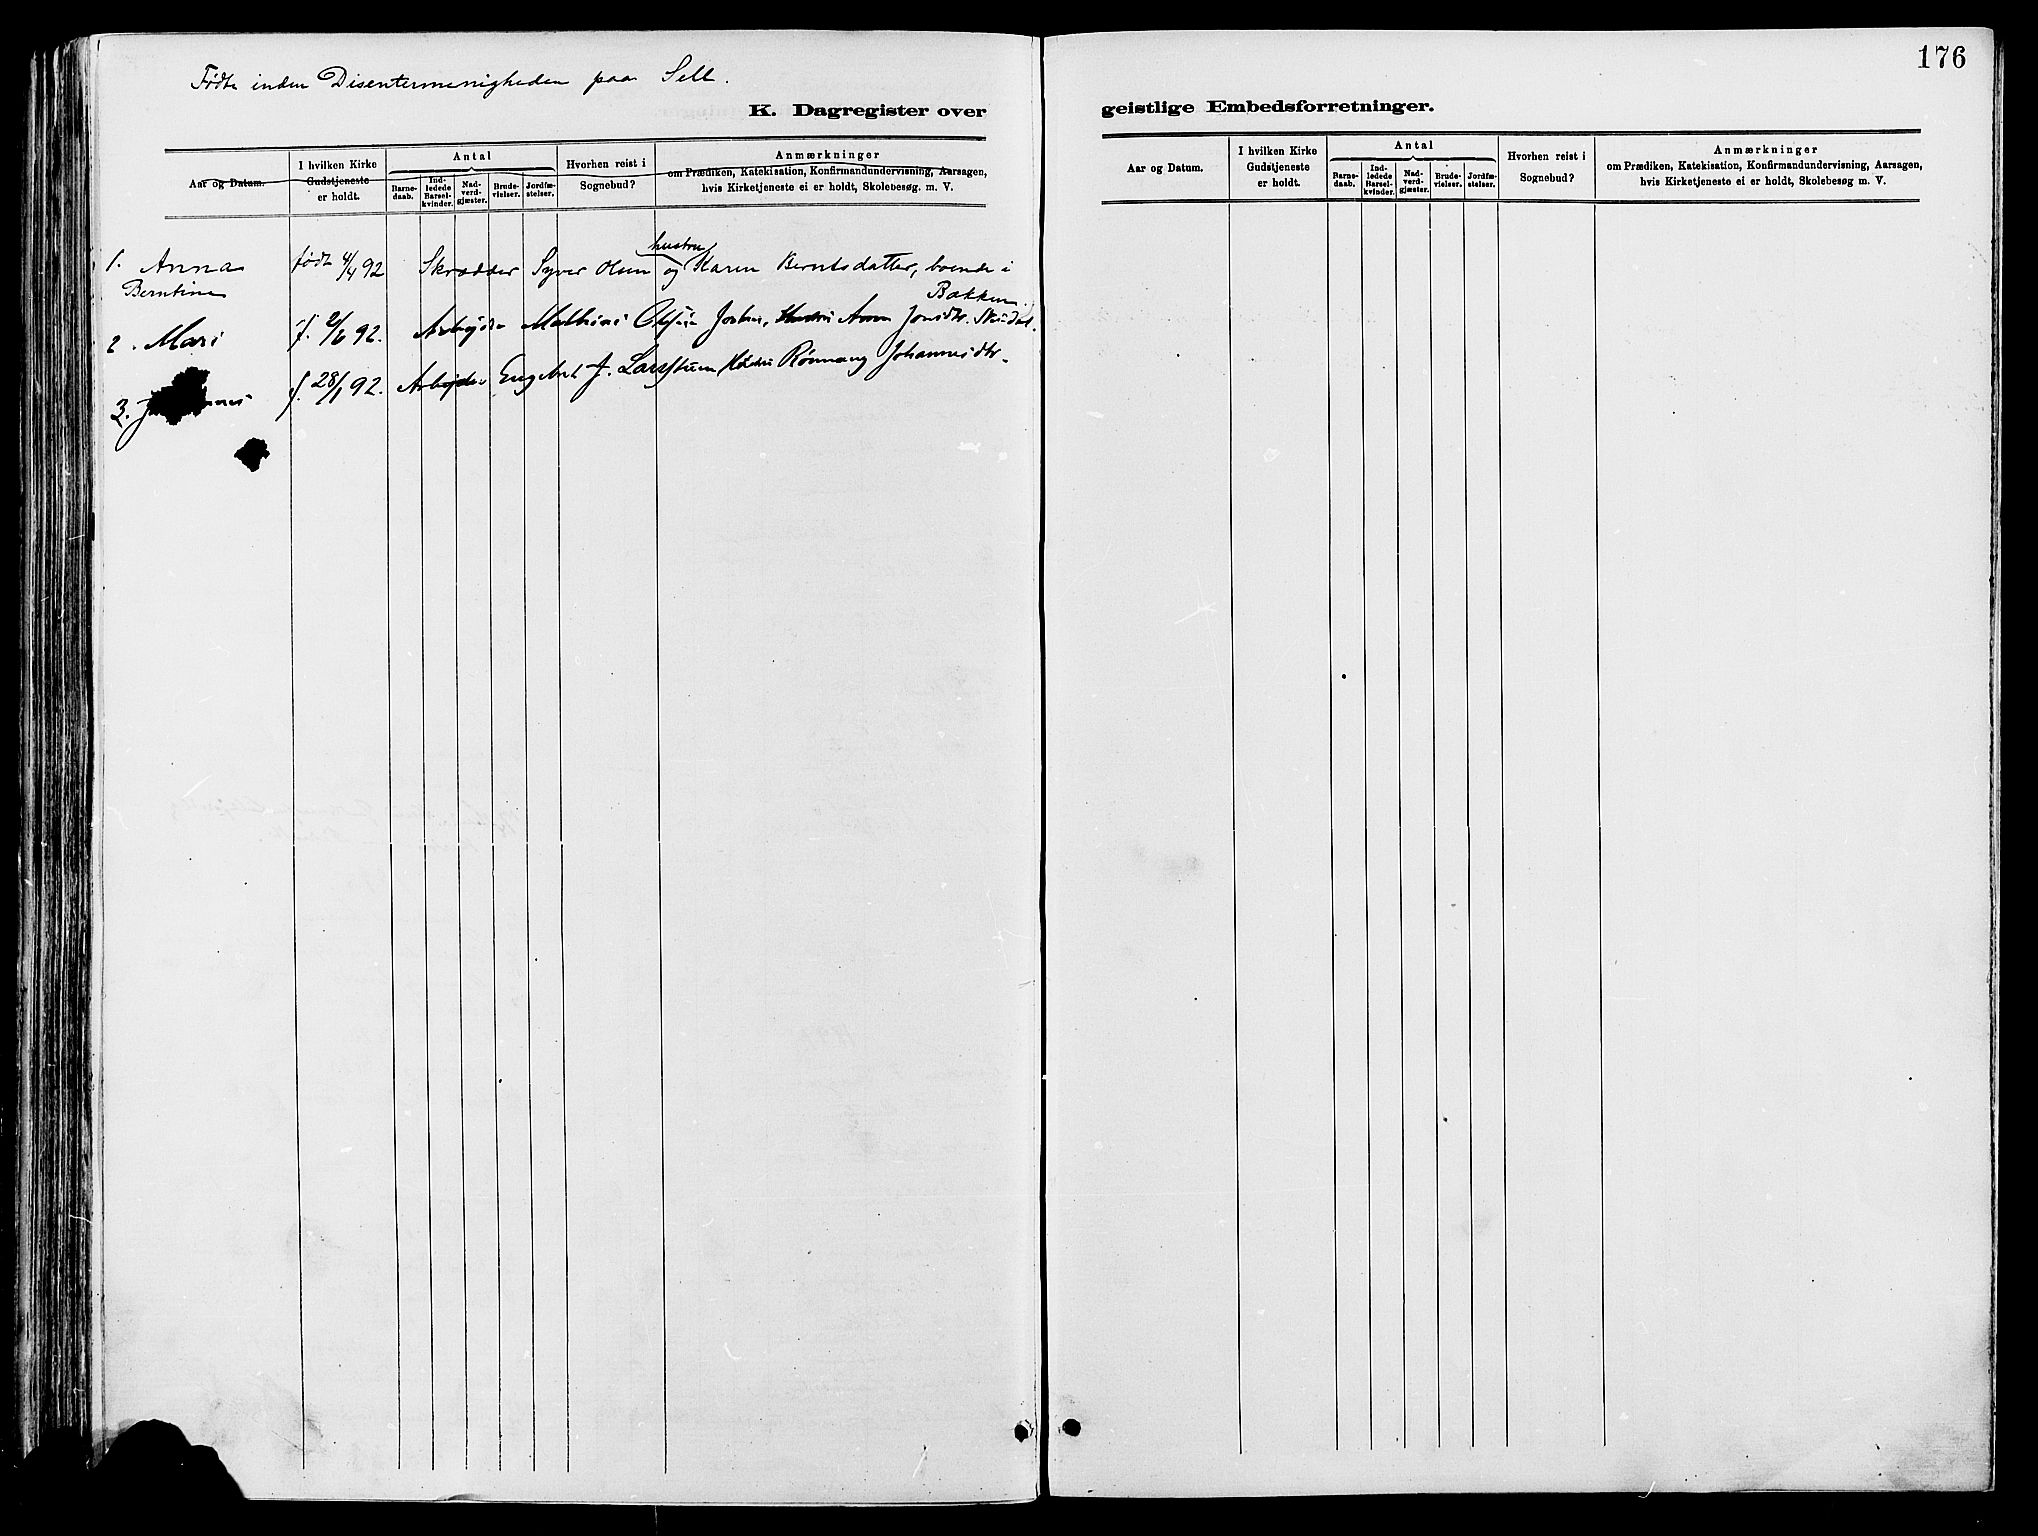 176
Fødte inden Disentermenigheden paa Sell.
K. Dagregister over geistlige Embedsforretninger.
Aar og Datum.
I hvilken Kirke
Gudstjeneste
er holdt.
Antal
Barne-
daab.
Ind-
ledede
Barsel-
kvinder.
Nad-
verd-
gjæster.
Brude-
vielser.
Jordfæ-
stelser.
Hvorhen reist i
Sognebud?
Anmærkninger
om Prædiken, Katekisation, Konfirmandundervisning, Aarsagen,
hvis Kirketjeneste ei er holdt, Skolebesøg m. V.
1. Anna født 4/4 92 Skrædder Syver Olsen og hustru Karen Berntsdatter, boende i
Berntine Bakken
2. Mari f. 2/6 92. Arbeider Mathias Hustru Anne Jonsdtr.
3. f. 28/1 92. Arbeider Engebret J. Hustru Rønnaug Johannesdtr.
Aar og Datum.
I hvilken Kirke
Gudstjeneste
er holdt.
Antal
Barne-
daab.
Ind-
ledede
Barsel-
kvinder.
Nad-
verd-
gjæster.
Brude-
vielser.
Jordfæ-
stelser.
Hvorhen reist i
Sognebud?
Anmærkninger
om Prædiken, Katekisation, Konfirmandundervisning, Aarsagen,
hvis Kirketjeneste ei er holdt, Skolebesøg m. V.